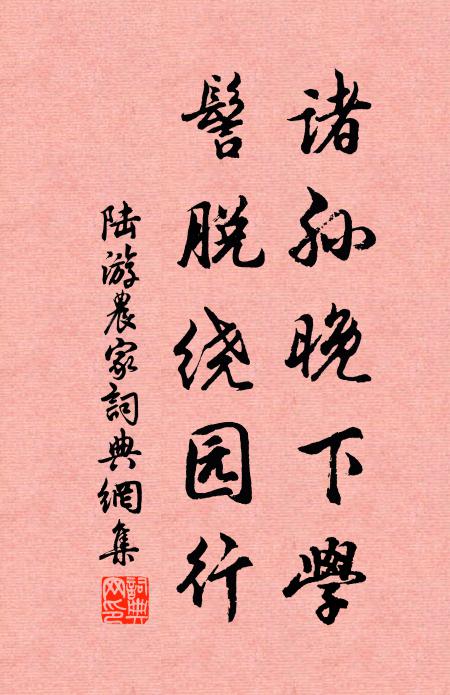 诸孙晚下學
髻脱绕园行
陆游農家詞典網集
詞典网印